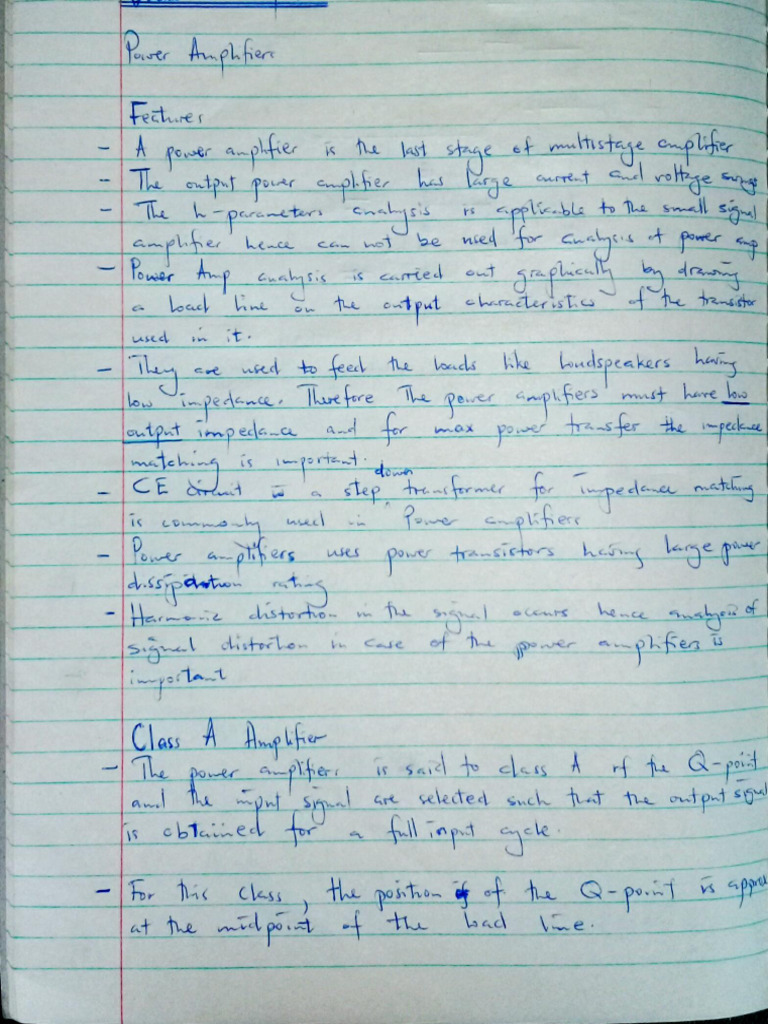 Power Amplifiers
Features
- A power amplifier is the last stage of multistage amplifier
- The output power amplifier has large current and voltage swings
- The h-parameters analysis is applicable to the small signal
amplifier hence can not be used for analysis of power amp
- Power Amp analysis is carried out graphically by drawing
a load line on the output characteristics of the transistor
used in it.
- They are used to feed the loads like loudspeakers having
low impedance. Therefore The power amplifiers must have low
output impedance and for max power transfer the impedance
matching is important.
- CE circuit is a step down transformer for impedance matching
is commonly used in Power amplifiers
- Power amplifiers uses power transistors having large power
dissipation rating
- Harmonic distortion in the signal occurs hence analysis of
signal distortion in case of the power amplifiers is
important
Class A Amplifier
- The power amplifiers is said to class A if the Q-point
and the input signal are selected such that the output signal
is obtained for a full input cycle.
- For this class, the position of the Q-point is approx
at the midpoint of the load line.